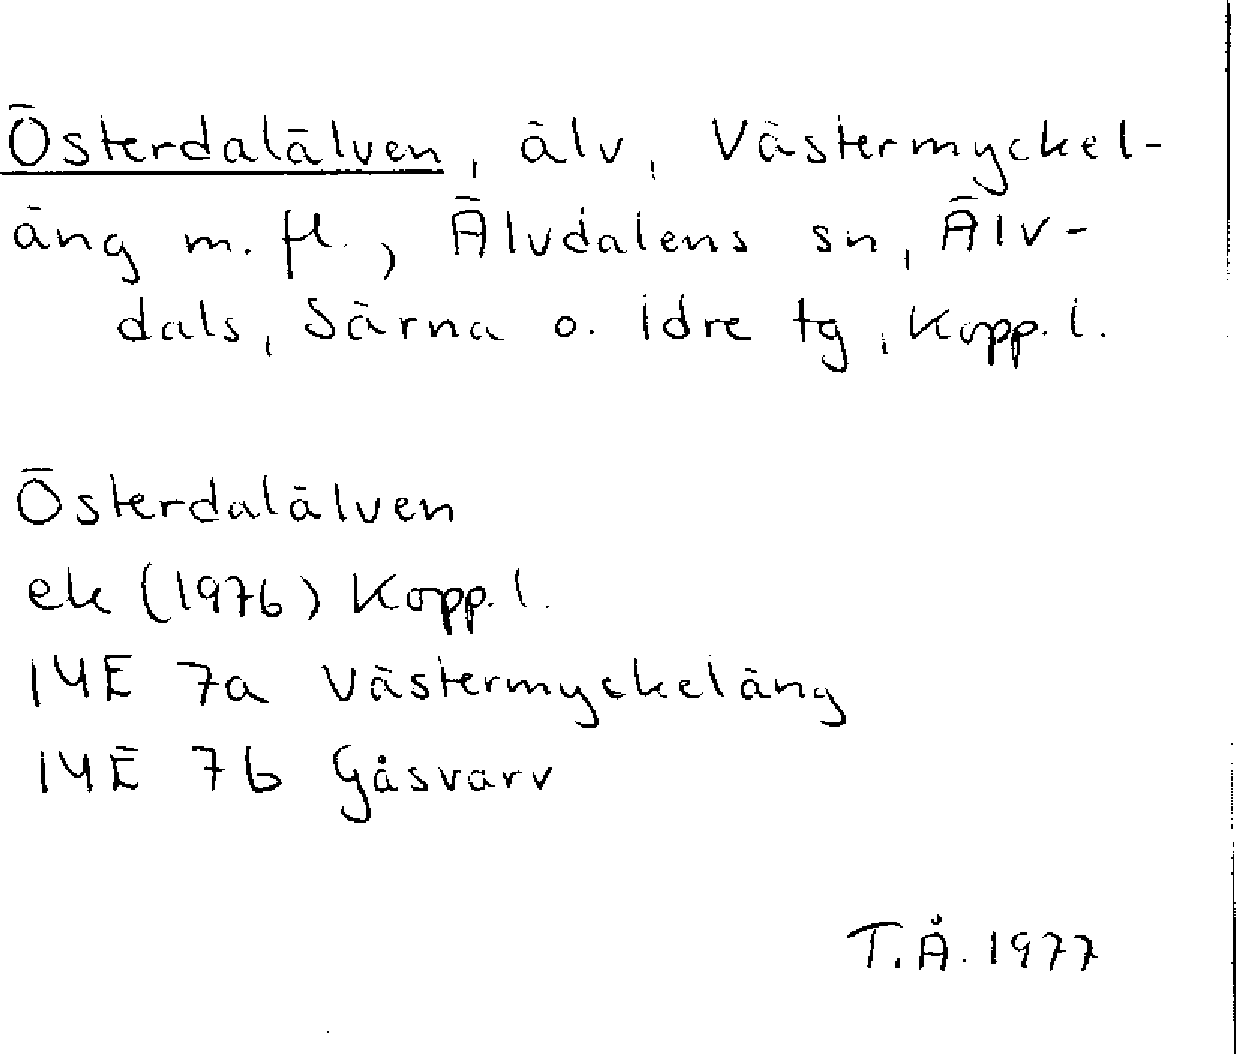 Österdalälven, älv, Västermyckel-
äng m. fl., Älvdalens sn, Älv-
dals, Särna o. Idre tg, Kopp. l.
Österdalälven
ek (1976) Kopp. l.
14E 7a Västermyckeläng
14E 7b Gåsvarv
T.Å. 1977